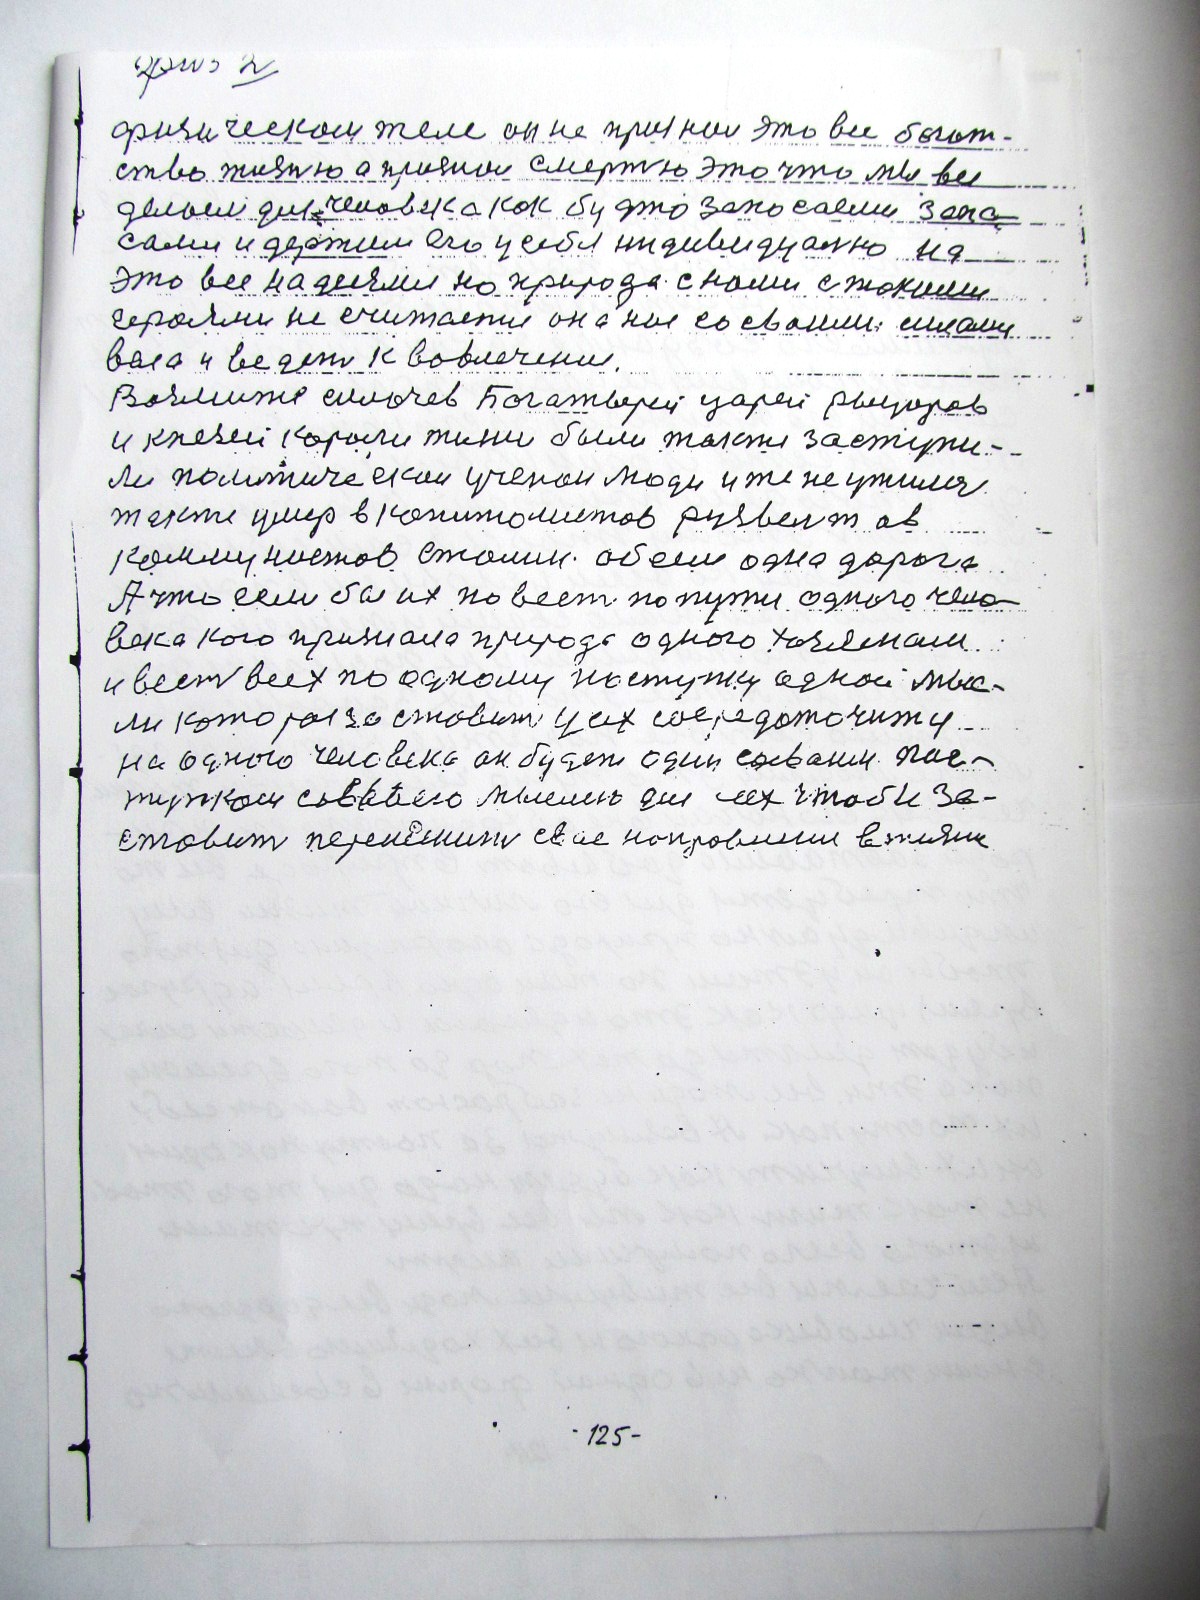 физическом теле он не признал это все богат-
ство жизню а признал смертю это что мы все
делаем для человека как будто запосаем запа
сами и держим его у себя индивидуално на
это все надеямся но природа с нами с такими
героями не считается она нас со своими силами
вала и ведет к вовлечению.
Возмите силачев Богатырей царей рыцаров
и князей короли тини были также заступи-
ли политическои ученои люди и те не ужился
также умер в капитолистов рузвелт а в
коммунистов Сталин. обеим одна дорога
А что если бы их повест по пути одного чело-
века кого признала природа одного хозяином
и вест всех по одному поступку одной мыс-
ли которая заставит у их сосредоточится
на одного человека он будет один со своим пос-
тупком со своею мыслею для их чтобы за-
ставит переменит свое направлении в жизни
-125-